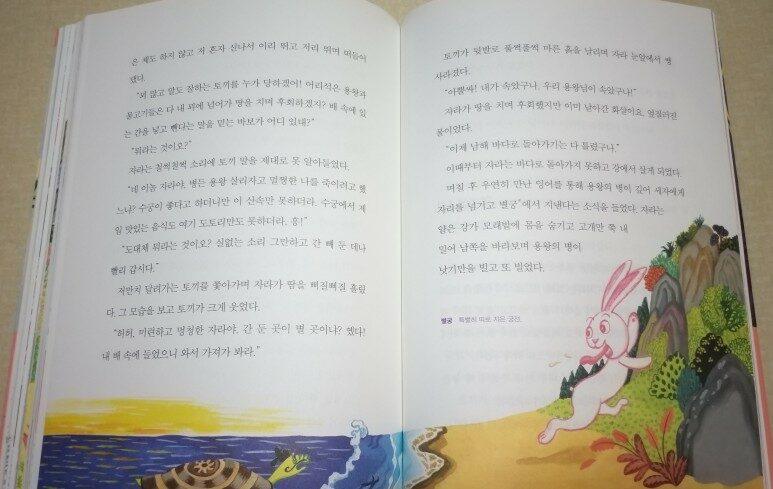 은 체도 하지 않고 저 혼자 신나서 이리 뛰고 저리 뛰며 떠들어
댔다.
"꾀 많고 말도 잘하는 토끼를 누가 당하겠어! 어리석은 용왕과
물고기들은 다 내 꾀에 넘어가 땅을 치며 후회하겠지? 배 속에 있
는 간을 넣고 뺀다는 말을 믿는 바보가 어디 있내?"
"뭐라는 것이오?"
자라는 철썩철썩 소리에 토끼 말을 제대로 못 알아들었다.
"네 이놈 자라야, 병든 용왕 살리자고 멀쩡한 나를 죽이려고 했
느냐? 수궁이 좋다고 하더니만 이 산속만 못하더라. 수궁에서 제
일 맛있는 음식도 여기 도토리만도 못하더라. 흥!"
"도대체 뭐라는 것이오? 실없는 소리 그만하고 간 빼 둔 데나
빨리 갑시다."
저만치 달려가는 토끼를 쫓아가며 자라가 땀을 삐질삐질 흘렸
다. 그 모습을 보고 토끼가 크게 웃었다.
"허허, 미련하고 멍청한 자라야. 간 둔 곳이 별 곳이냐? 옜다!
내 배 속에 들었으니 와서 가져가 봐라."
토끼가 뒷발로 풀썩풀썩 마른 흙을 날리며 자라 눈앞에서 뿅
사라졌다.
"아뿔싸! 내가 속았구나. 우리 용왕님이 속았구나!"
자라가 땅을 치며 후회했지만 이미 날아간 화살이요, 엎질러진
물이었다.
"이제 남해 바다로 돌아가기는 다 틀렸구나."
이때부터 자라는 바다로 돌아가지 못하고 강에서 살게 되었다.
며칠 후 우연히 만난 잉어를 통해 용왕의 병이 깊어 세자에게
자리를 넘기고 별궁에서 지낸다는 소식을 들었다. 자라는
얕은 강가 모래밭에 몸을 숨기고 고개만 쭉 내
밀어 남쪽을 바라보며 용왕의 병이
낫기만을 빌고 또 빌었다.
별궁 특별히 따로 지은 궁전.